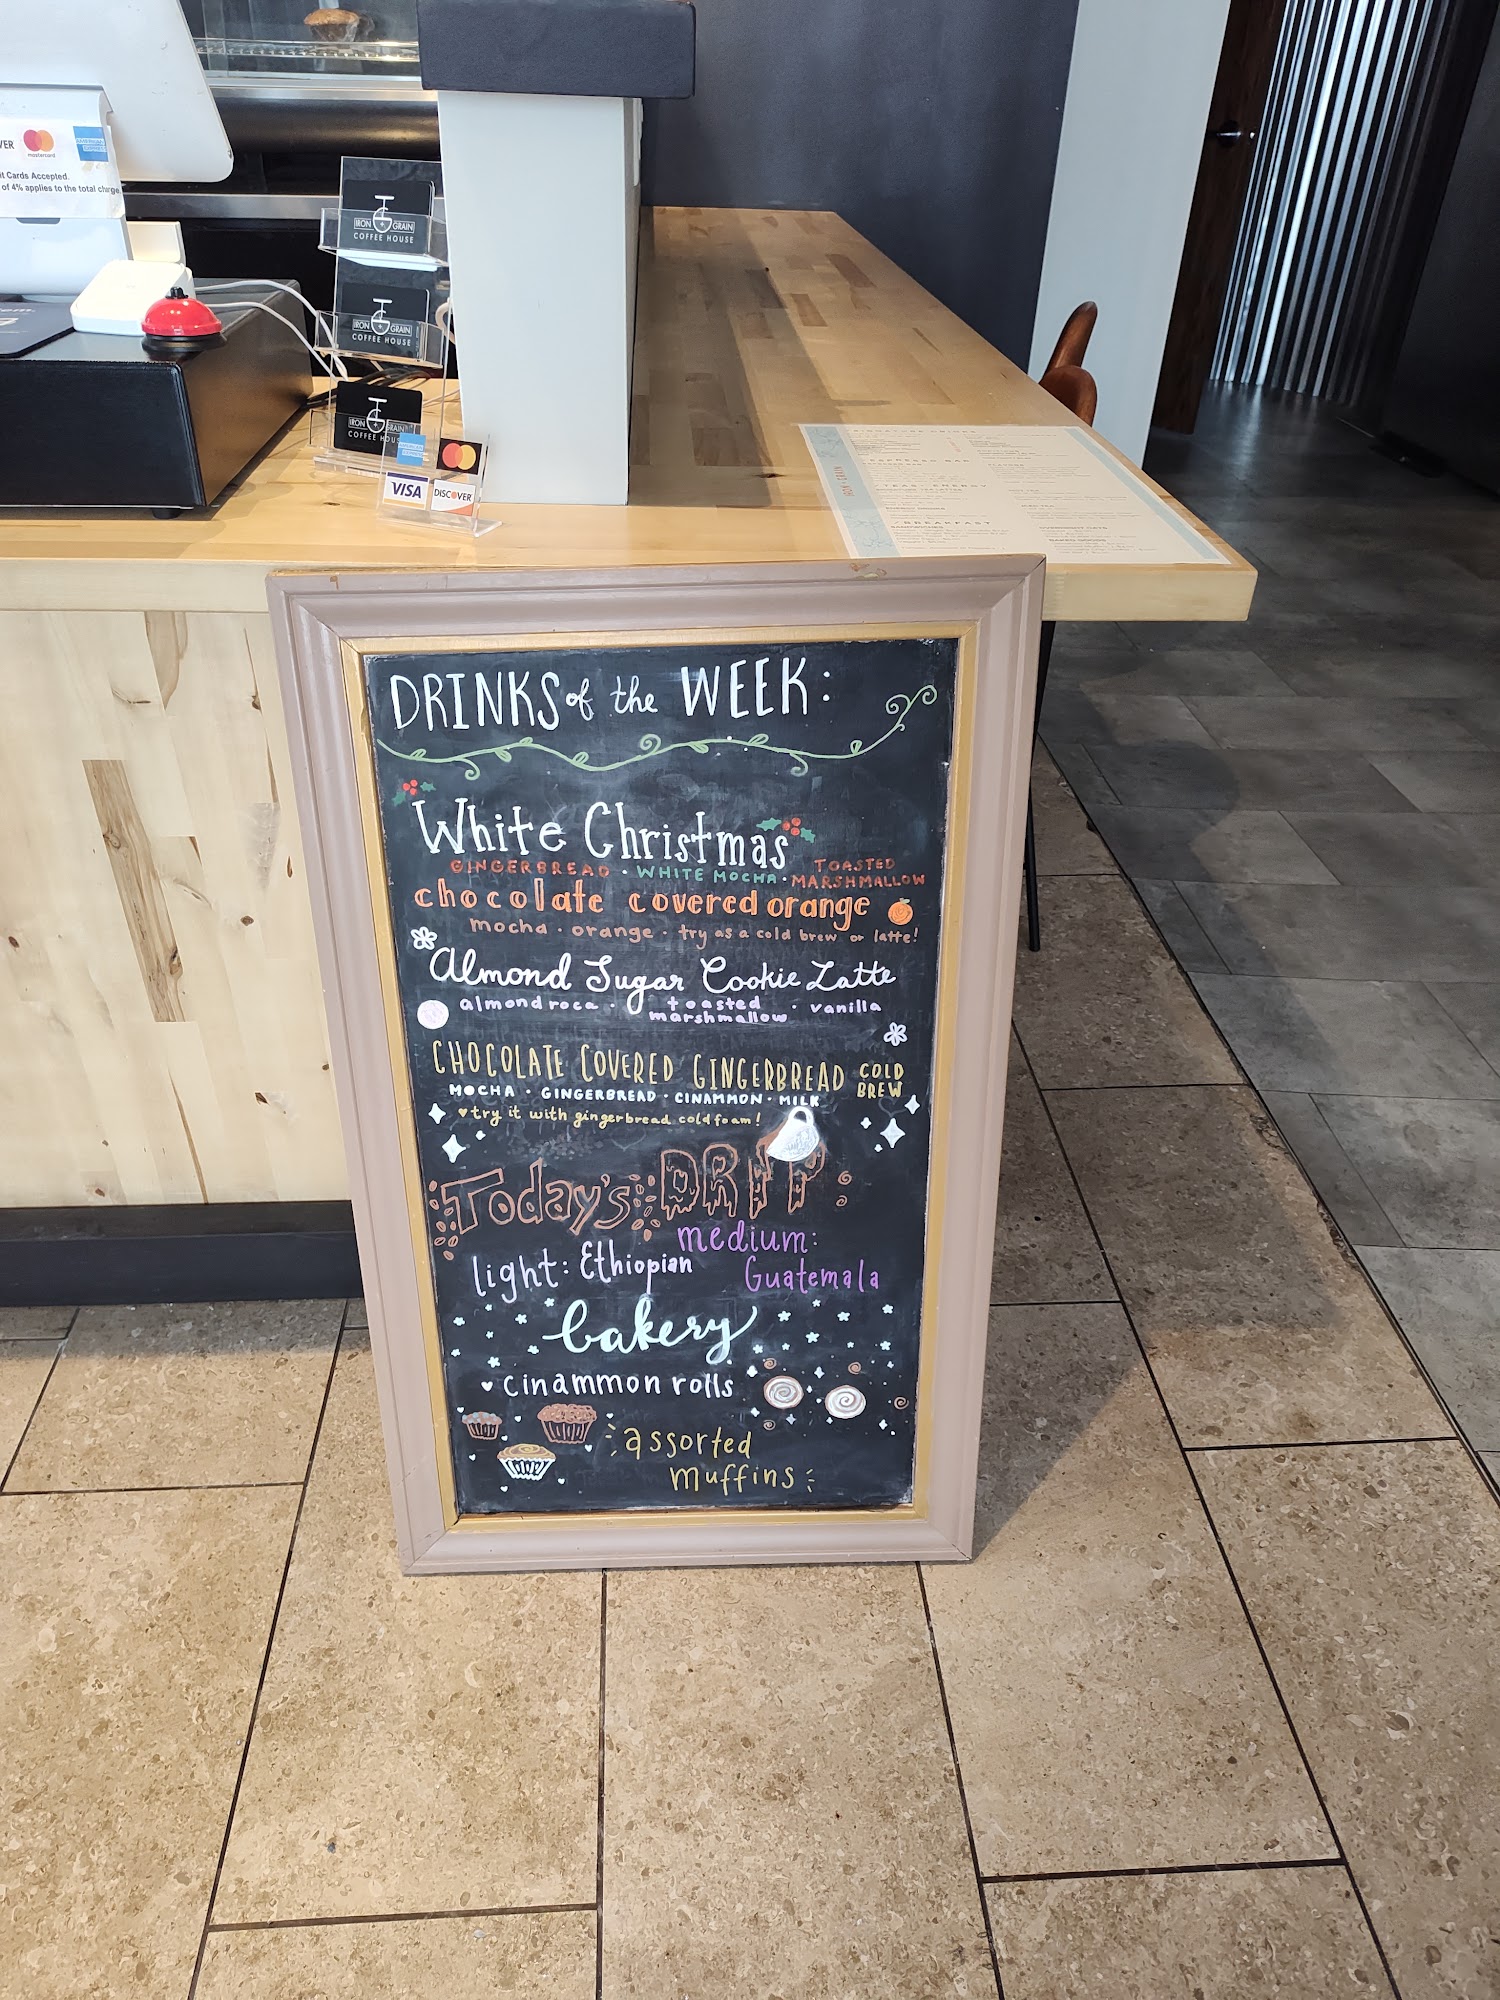 VER mastercard AMERICAN EXPRESS
t Cards Accepted.
of 4% applies to the total charge
IRON GRAIN
COFFEE HOUSE
IRON GRAIN
COFFEE HOUSE
IRON GRAIN
COFFEE HOUSE
VISA DISCOVER
IRON + GRAIN
DRINKS of the WEEK:
White Christmas
GINGERBREAD · WHITE MOCHA · TOASTED MARSHMALLOW
chocolate covered orange
mocha · orange · try as a cold brew or latte!
Almond Sugar Cookie Latte
almond roca · toasted marshmallow · vanilla
CHOCOLATE COVERED GINGERBREAD COLD BREW
MOCHA · GINGERBREAD · CINAMMON · MILK
♥ try it with gingerbread cold foam!
Today's DRIP:
light: Ethiopian
medium:
Guatemala
bakery
♥ cinammon rolls
assorted
muffins